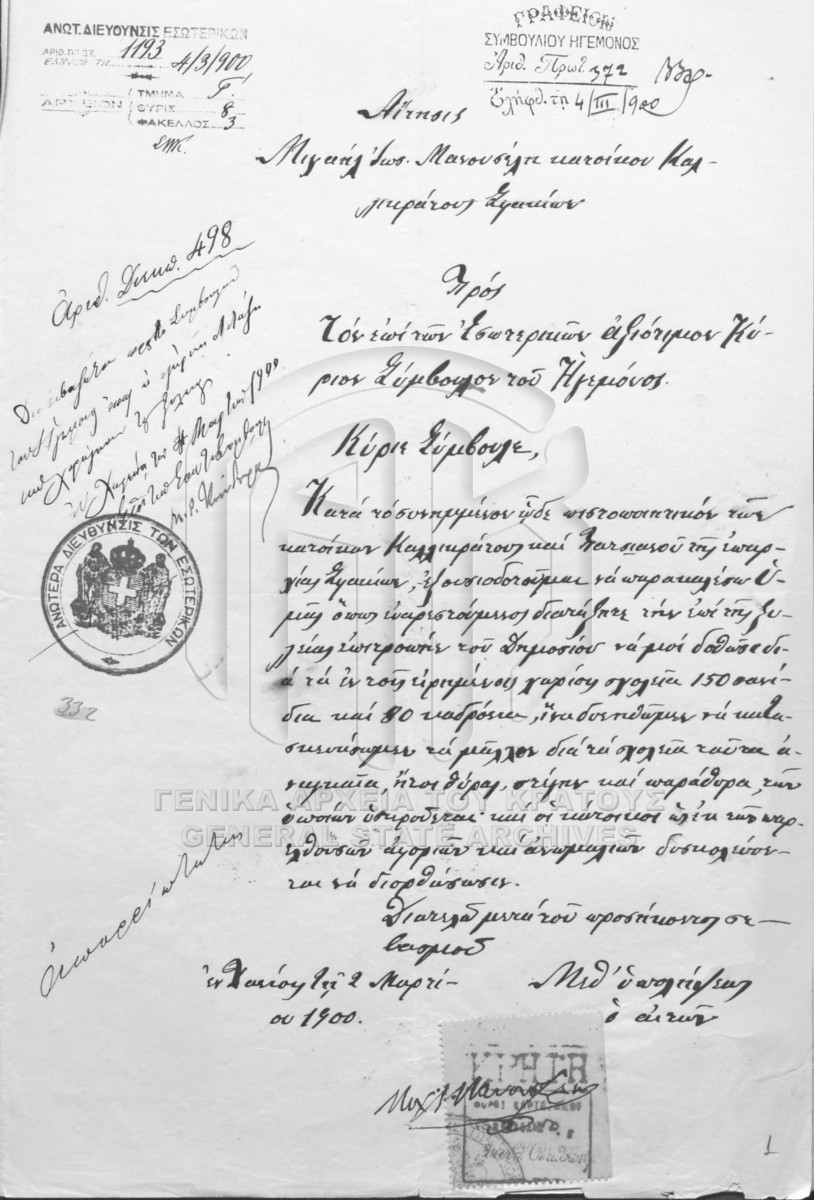 ΑΝΩΤ. ΔΙΕΥΘΥΝΣΙΣ ΕΣΩΤΕΡΙΚΩΝ
ΑΡΙΘ. ΠΡΩΤ. 1193
ΕΛΗΦΘΗ ΤΗ 4/3/900
ΑΡΧΕΙΟΝ
ΤΜΗΜΑ Γ΄
ΘΥΡΙΣ 8
ΦΑΚΕΛΛΟΣ 3
ΓΡΑΦΕΙΟΝ
ΣΥΜΒΟΥΛΙΟΥ ΗΓΕΜΟΝΟΣ
Ἀριθ. Πρωτ. 372
Ἐλήφθ. τῇ 4/III/900
Αἴτησις
Μιχαήλ Ἰωσ. Μανουσέλη κατοίκου Καλ-
λικράτους Σφακίων
Πρός
Τόν ἐπί τῶν Ἐσωτερικῶν ἀξιότιμον Κύ-
ριον Σύμβουλον τοῦ Ἡγεμόνος.
Κύριε Σύμβουλε,
Κατά τό συνημμένον ὧδε πιστοποιητικόν τῶν
κατοίκων Καλλικράτους καί Πατσιανοῦ τῆς ἐπαρ-
χίας Σφακίων, ἐξουσιοδοτοῦμαι νά παρακαλέσω Ὑ-
μᾶς ὅπως εὐαρεστούμενος διατάξητε τήν ἐπί τῆς ξυ-
λείας ἐπιτροπήν τοῦ Δημοσίου νά μοί δοθῶσι δι-
ά τά ἐν τοῖς εἰρημένοις χωρίοις σχολεῖα 150 σανί-
δια καί 80 καδρόνια, ἵνα δυνηθῶμεν νά κατα-
σκευάσωμεν τά μᾶλλον διά τά σχολεῖα ταῦτα ἀ-
ναγκαῖα, ἤτοι θύρας, στέγην καί παράθυρα, τῶν
ὁποίων ὑστεροῦνται καί οἱ κάτοικοι ὡς ἐκ τῶν παρ-
ελθουσῶν ἀφοριῶν καί ἀνωμαλιῶν δυσκολεύον-
ται νά διορθώσωσιν.
Διατελῶ μετά τοῦ προσήκοντος σε-
βασμοῦ
ἐν Χανίοις τῇ 2 Μαρτί-
ου 1900.
Μεθ' ὑπολήψεως
ὁ αἰτῶν
Μιχ. Ι. Μανουσέλης
ΚΡΗΤΗ
Ἀριθ. Διεκπ. 498
Διαβιβάζεται πρός τό Συμβούλιον
τοῦ Ἡγεμόνος ὅπως
Ἐν Χανίοις τῇ 4 Μαρτίου 1900
ΑΝΩΤΕΡΑ ΔΙΕΥΘΥΝΣΙΣ ΤΩΝ ΕΣΩΤΕΡΙΚΩΝ
332
ΓΕΝΙΚΑ ΑΡΧΕΙΑ ΤΟΥ ΚΡΑΤΟΥΣ
GENERAL STATE ARCHIVES
1